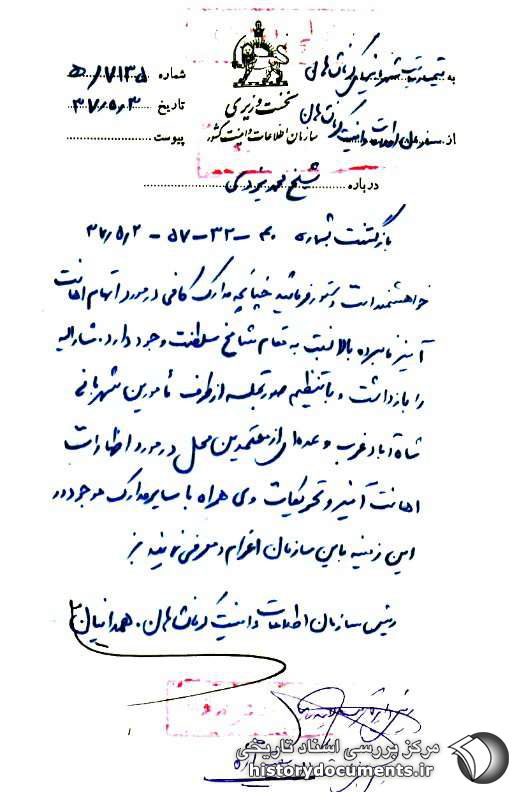 به تیمسار ریاست شهربانیهای کرمانشاهان
شماره ۷۱۳۵/ه
نخست وزیری
تاریخ ۳۷/۵/۳
از سازمان اطلاعات و امنیت کرمانشاهان
سازمان اطلاعات و امنیت کشور
پیوست
درباره شیخ محمد یزدی
بازگشت بشماره ۴۰-۳۲-۵۷-۳۷/۵/۲
خواهشمند است دستور فرمائید چنانچه مدارک کافی در مورد اتهام اهانت
آمیز نامبرده بالا نسبت به مقام شامخ سلطنت وجود دارد. مشارالیه
را بازداشت و با تنظیم صورتجلسه از طرف مأمورین شهربانی
شاه آباد غرب و عده ای از معتمدین محل در مورد اظهارات
اهانت آمیز و تحریکات وی همراه با سایر مدارک موجود در
این زمینه باین سازمان اعزام و معرفی نمایند
رئیس سازمان اطلاعات و امنیت کرمانشاهان. همدانیان
مرکز بررسی اسناد تاریخی
historydocuments.ir